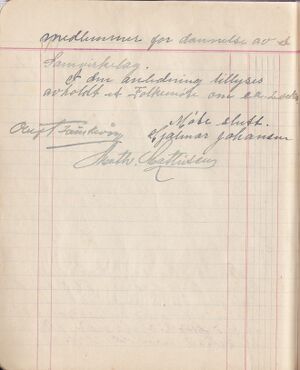 medlemmer for dannelse av et
Samvirkelag.
I den anledning tillyses
avholdt et Folkemøte om
Møte slutt.
Hjalmar Johansen
Math. Mathisen